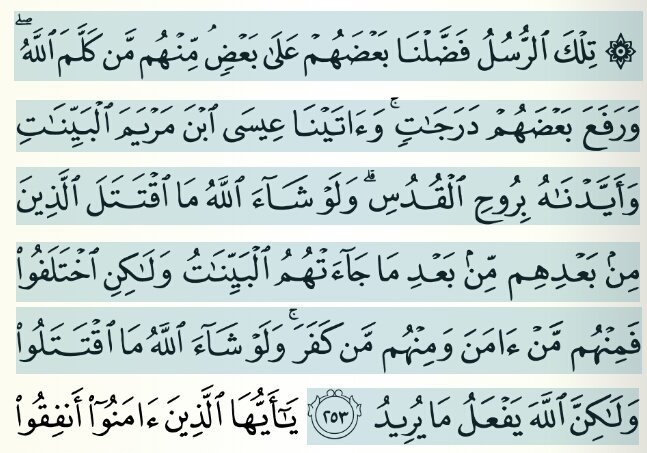 ۞ تِلۡكَ ٱلرُّسُلُ فَضَّلۡنَا بَعۡضَهُمۡ عَلَىٰ بَعۡضٖۘ مِّنۡهُم مَّن كَلَّمَ ٱللَّهُۖ
وَرَفَعَ بَعۡضَهُمۡ دَرَجَٰتٖۚ وَءَاتَيۡنَا عِيسَى ٱبۡنَ مَرۡيَمَ ٱلۡبَيِّنَٰتِ
وَأَيَّدۡنَٰهُ بِرُوحِ ٱلۡقُدُسِۗ وَلَوۡ شَآءَ ٱللَّهُ مَا ٱقۡتَتَلَ ٱلَّذِينَ
مِنۢ بَعۡدِهِم مِّنۢ بَعۡدِ مَا جَآءَتۡهُمُ ٱلۡبَيِّنَٰتُ وَلَٰكِنِ ٱخۡتَلَفُواْ
فَمِنۡهُم مَّنۡ ءَامَنَ وَمِنۡهُم مَّن كَفَرَۚ وَلَوۡ شَآءَ ٱللَّهُ مَا ٱقۡتَتَلُواْ
وَلَٰكِنَّ ٱللَّهَ يَفۡعَلُ مَا يُرِيدُ ٢٥٣ يَٰٓأَيُّهَا ٱلَّذِينَ ءَامَنُوٓاْ أَنفِقُواْ